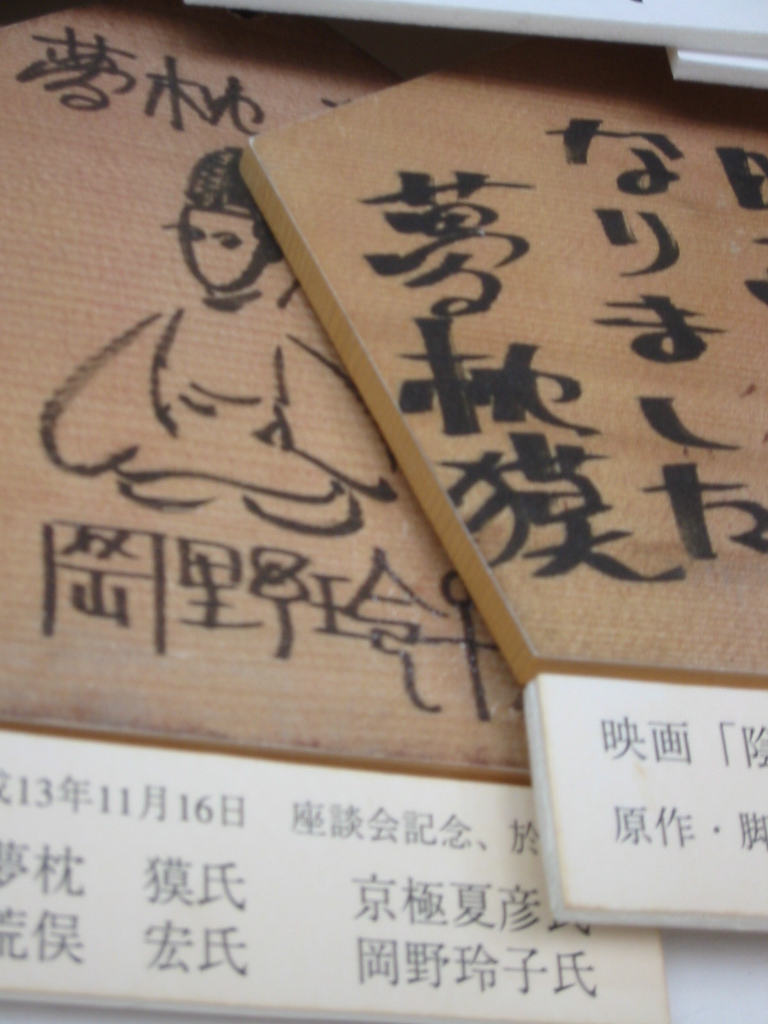 夢枕
岡野玲
成13年11月16日 座談会記念、於
夢枕 獏氏 京極夏彦氏
荒俣 宏氏 岡野玲子氏
なりました
夢枕獏
映画「陰
原作・脚